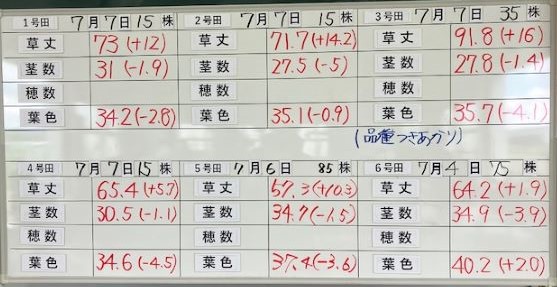 1号田 7月7日 15株
草丈 73 (+12)
茎数 31 (-1.9)
穂数
葉色 34.2 (-2.8)
2号田 7月7日 15株
草丈 71.7 (+14.2)
茎数 27.5 (-5)
穂数
葉色 35.1 (-0.9)
3号田 7月7日 35株
草丈 91.8 (+16)
茎数 27.8 (-1.4)
穂数
葉色 35.7 (-4.1)
(品種つきあかり)
4号田 7月7日 15株
草丈 65.4 (+5.7)
茎数 30.5 (-1.1)
穂数
葉色 34.6 (-4.5)
5号田 7月6日 85株
草丈 67.3 (+10.3)
茎数 34.7 (-1.5)
穂数
葉色 37.4 (-3.6)
6号田 7月4日 75株
草丈 64.2 (+1.9)
茎数 34.9 (-3.9)
穂数
葉色 40.2 (+2.0)